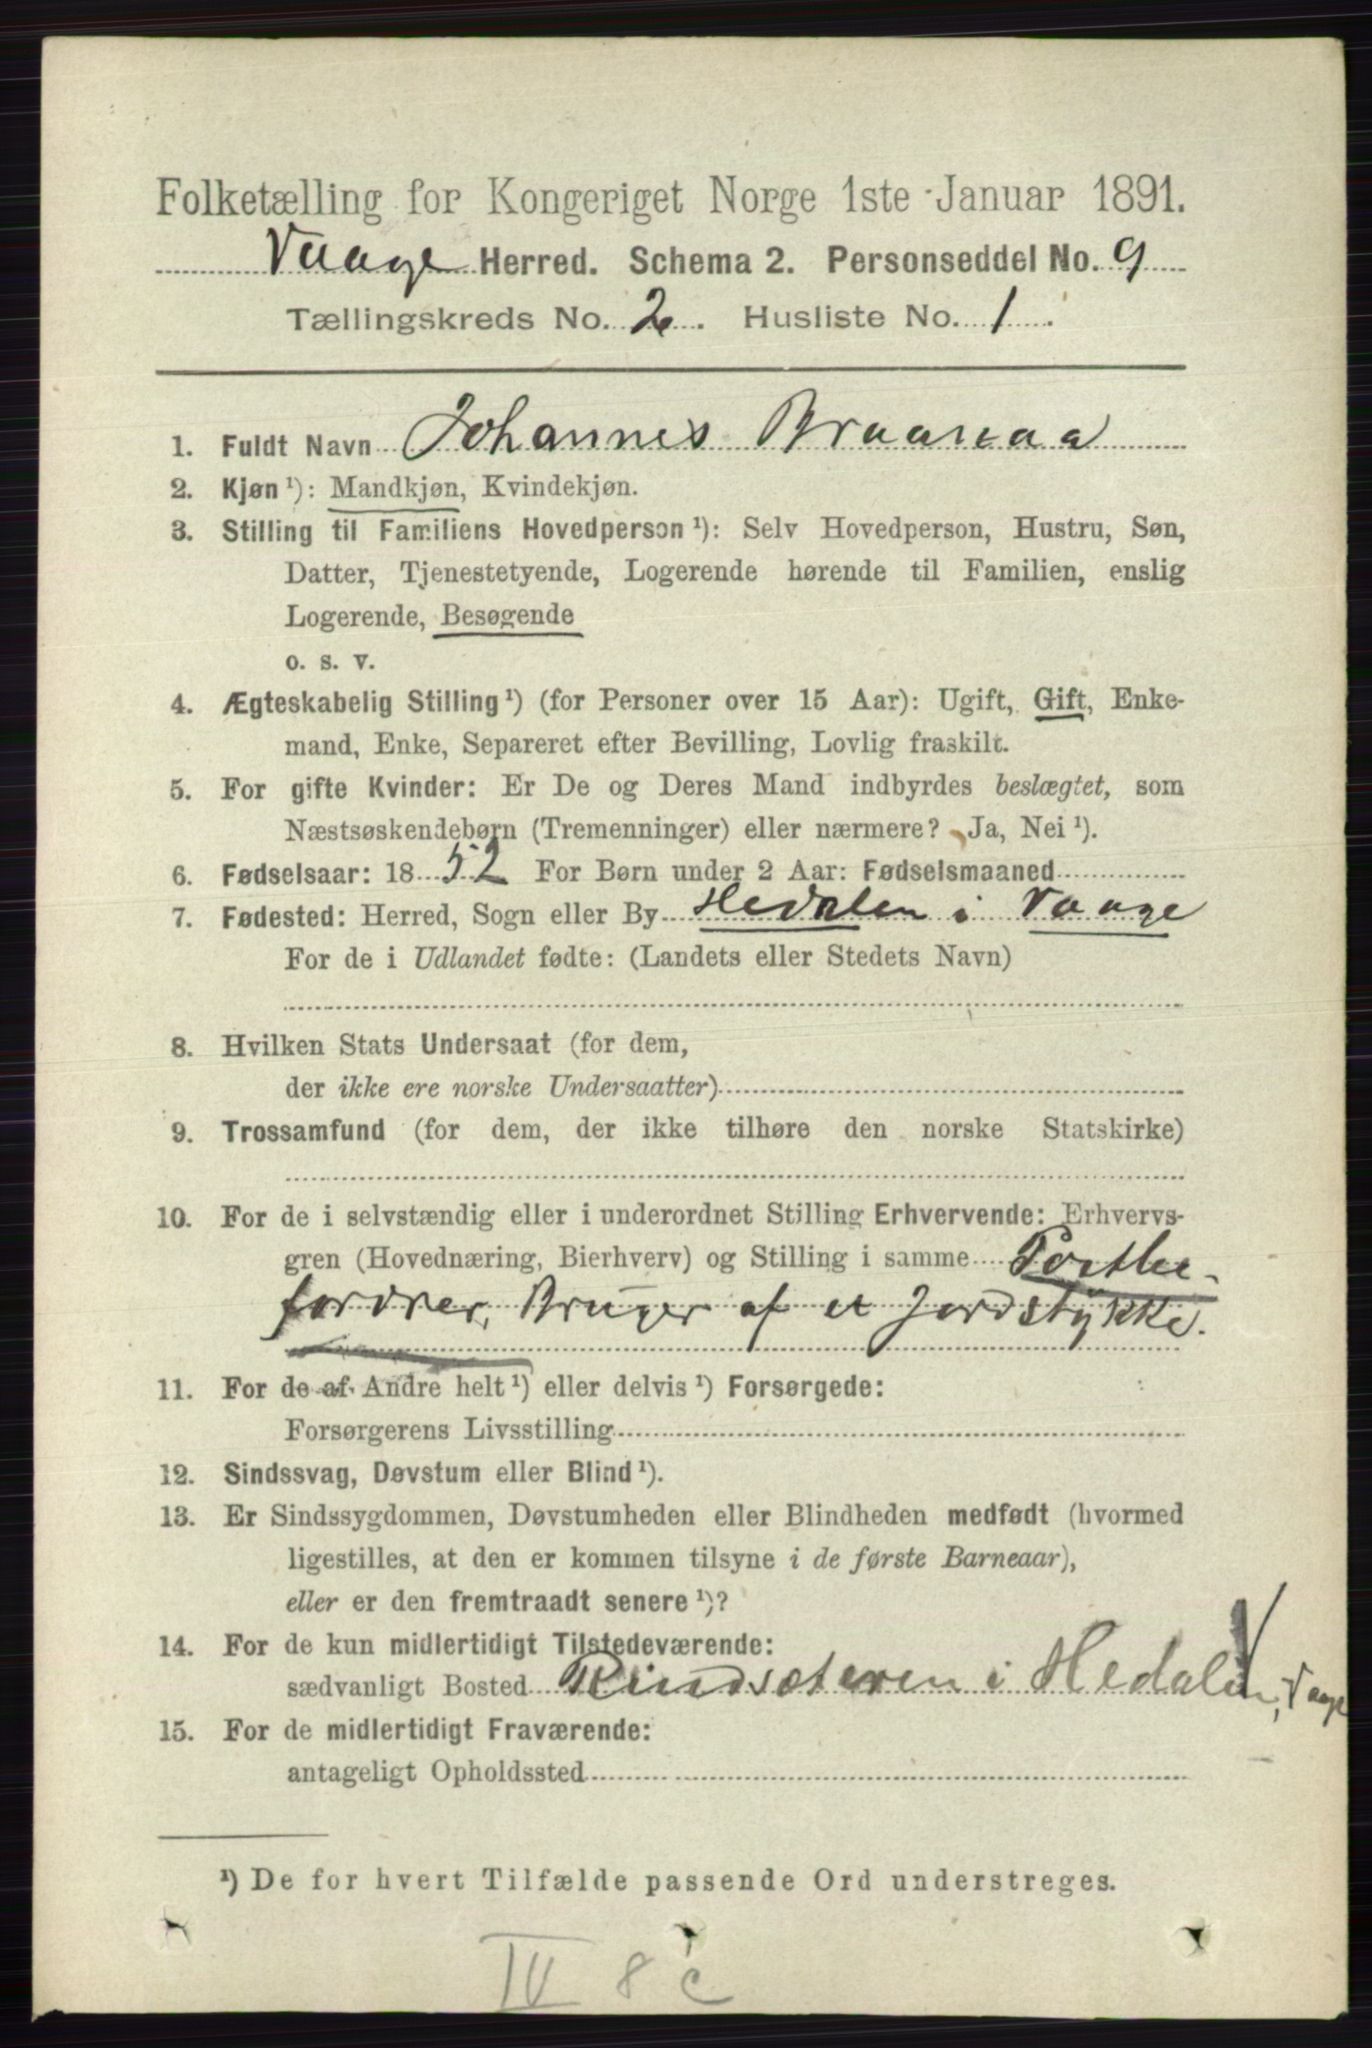 Folketælling for Kongeriget Norge 1ste Januar 1891.
Vaage Herred. Schema 2. Personseddel No. 9
Tællingskreds No. 2. Husliste No. 1.
1. Fuldt Navn Johannes Braaeaa
2. Kjøn ¹): Mandkjøn, Kvindekjøn.
3. Stilling til Familiens Hovedperson ¹): Selv Hovedperson, Hustru, Søn,
Datter, Tjenestetyende, Logerende hørende til Familien, enslig
Logerende, Besøgende
o. s. v.
4. Ægteskabelig Stilling ¹) (for Personer over 15 Aar): Ugift, Gift, Enke-
mand, Enke, Separeret efter Bevilling, Lovlig fraskilt.
5. For gifte Kvinder: Er De og Deres Mand indbyrdes beslægtet, som
Næstsøskendebørn (Tremenninger) eller nærmere? Ja, Nei ¹).
6. Fødselsaar: 1852 For Børn under 2 Aar: Fødselsmaaned
7. Fødested: Herred, Sogn eller By Hedalen i Vaage
For de i Udlandet fødte: (Landets eller Stedets Navn)
8. Hvilken Stats Undersaat (for dem,
der ikke ere norske Undersaatter)
9. Trossamfund (for dem, der ikke tilhøre den norske Statskirke)
10. For de i selvstændig eller i underordnet Stilling Erhvervende: Erhvervs-
gren (Hovednæring, Bierhverv) og Stilling i samme Postbe-
fordrer, Bruger af et Jordstykke.
11. For de af Andre helt ¹) eller delvis ¹) Forsørgede:
Forsørgerens Livsstilling
12. Sindssvag, Døvstum eller Blind ¹).
13. Er Sindssygdommen, Døvstumheden eller Blindheden medfødt (hvormed
ligestilles, at den er kommen tilsyne i de første Barneaar),
eller er den fremtraadt senere ¹)?
14. For de kun midlertidigt Tilstedeværende:
sædvanligt Bosted Rindsæteren i Hedalen, Vaage
15. For de midlertidigt Fraværende:
antageligt Opholdssted
¹) De for hvert Tilfælde passende Ord understreges.
IV 8 c